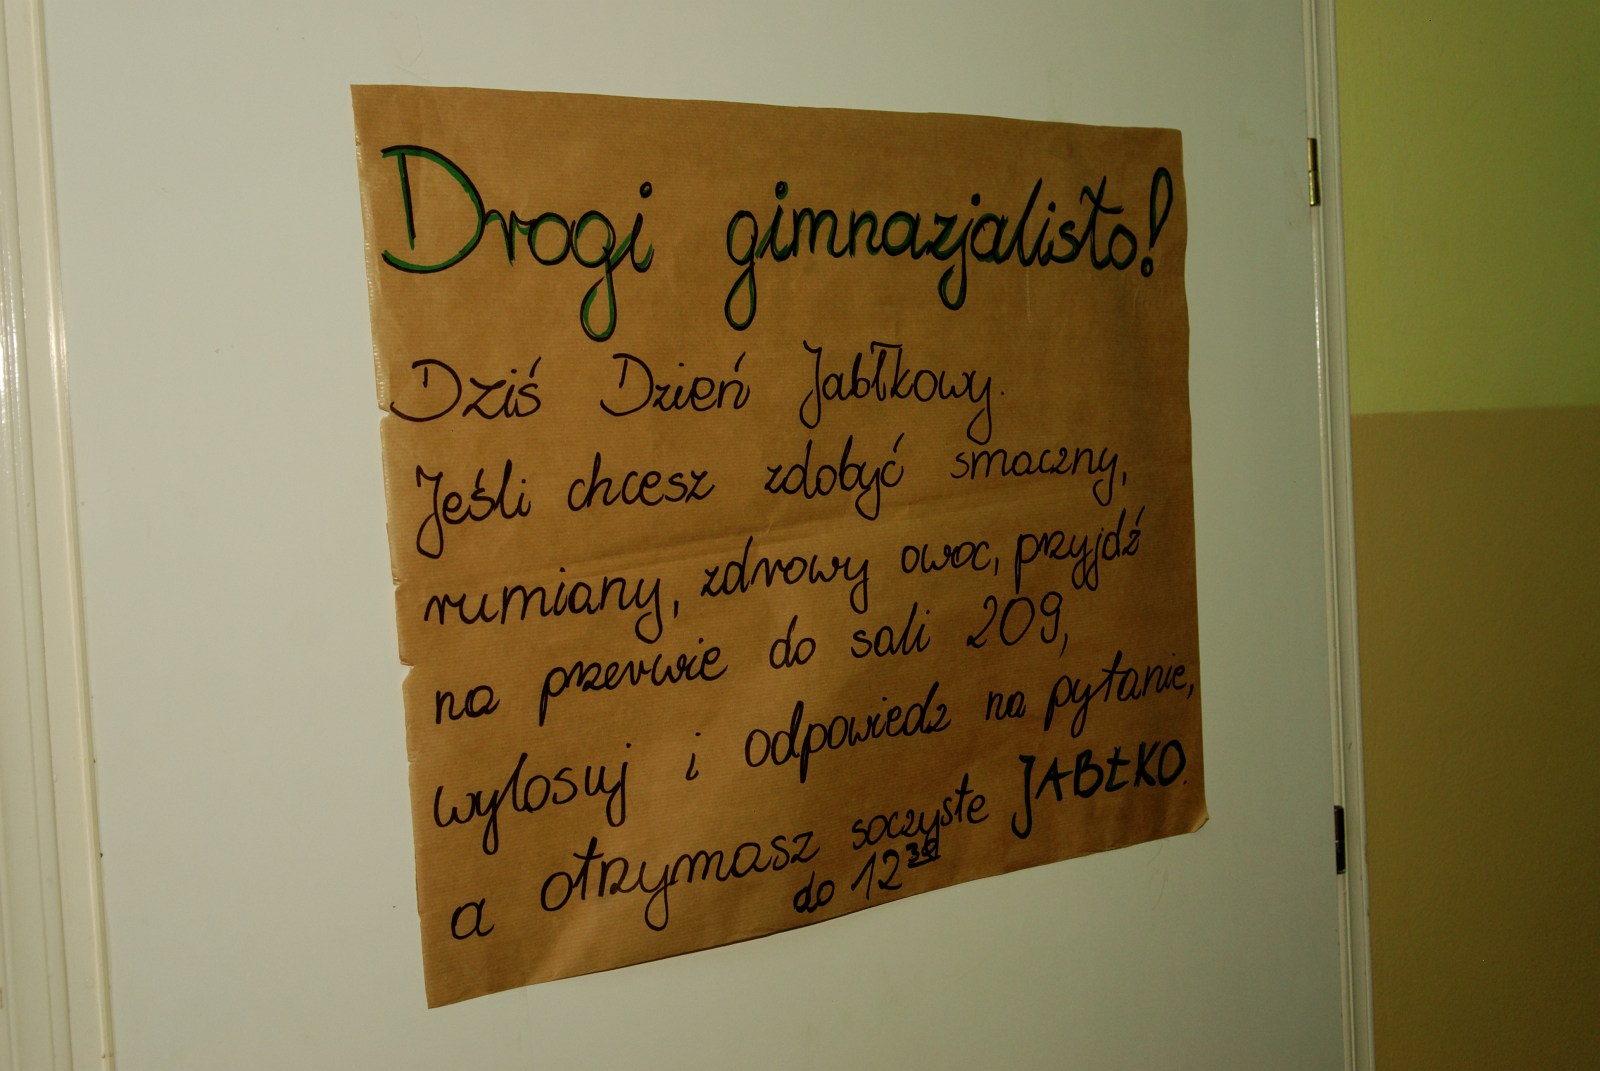 Drogi gimnazjalisto!
Dziś Dzień Jabłkowy.
Jeśli chcesz zdobyć smaczny,
rumiany, zdrowy owoc, przyjdź
na przerwie do sali 209,
wylosuj i odpowiedz na pytanie,
a otrzymasz soczyste JABŁKO.
do 12 30